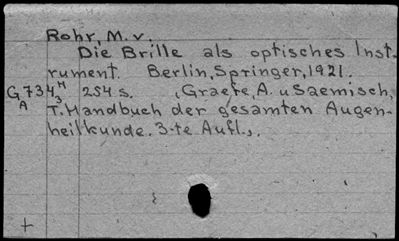 Rohr, M. v.
Die Brille als optisches Inst-
rument. Berlin, Springer, 1921.
G 734 H 254 s. (Graefe, A. u Saemisch,
A 3 T. Handbuch der gesamten Augen-
heilkunde. 3-te Aufl.).